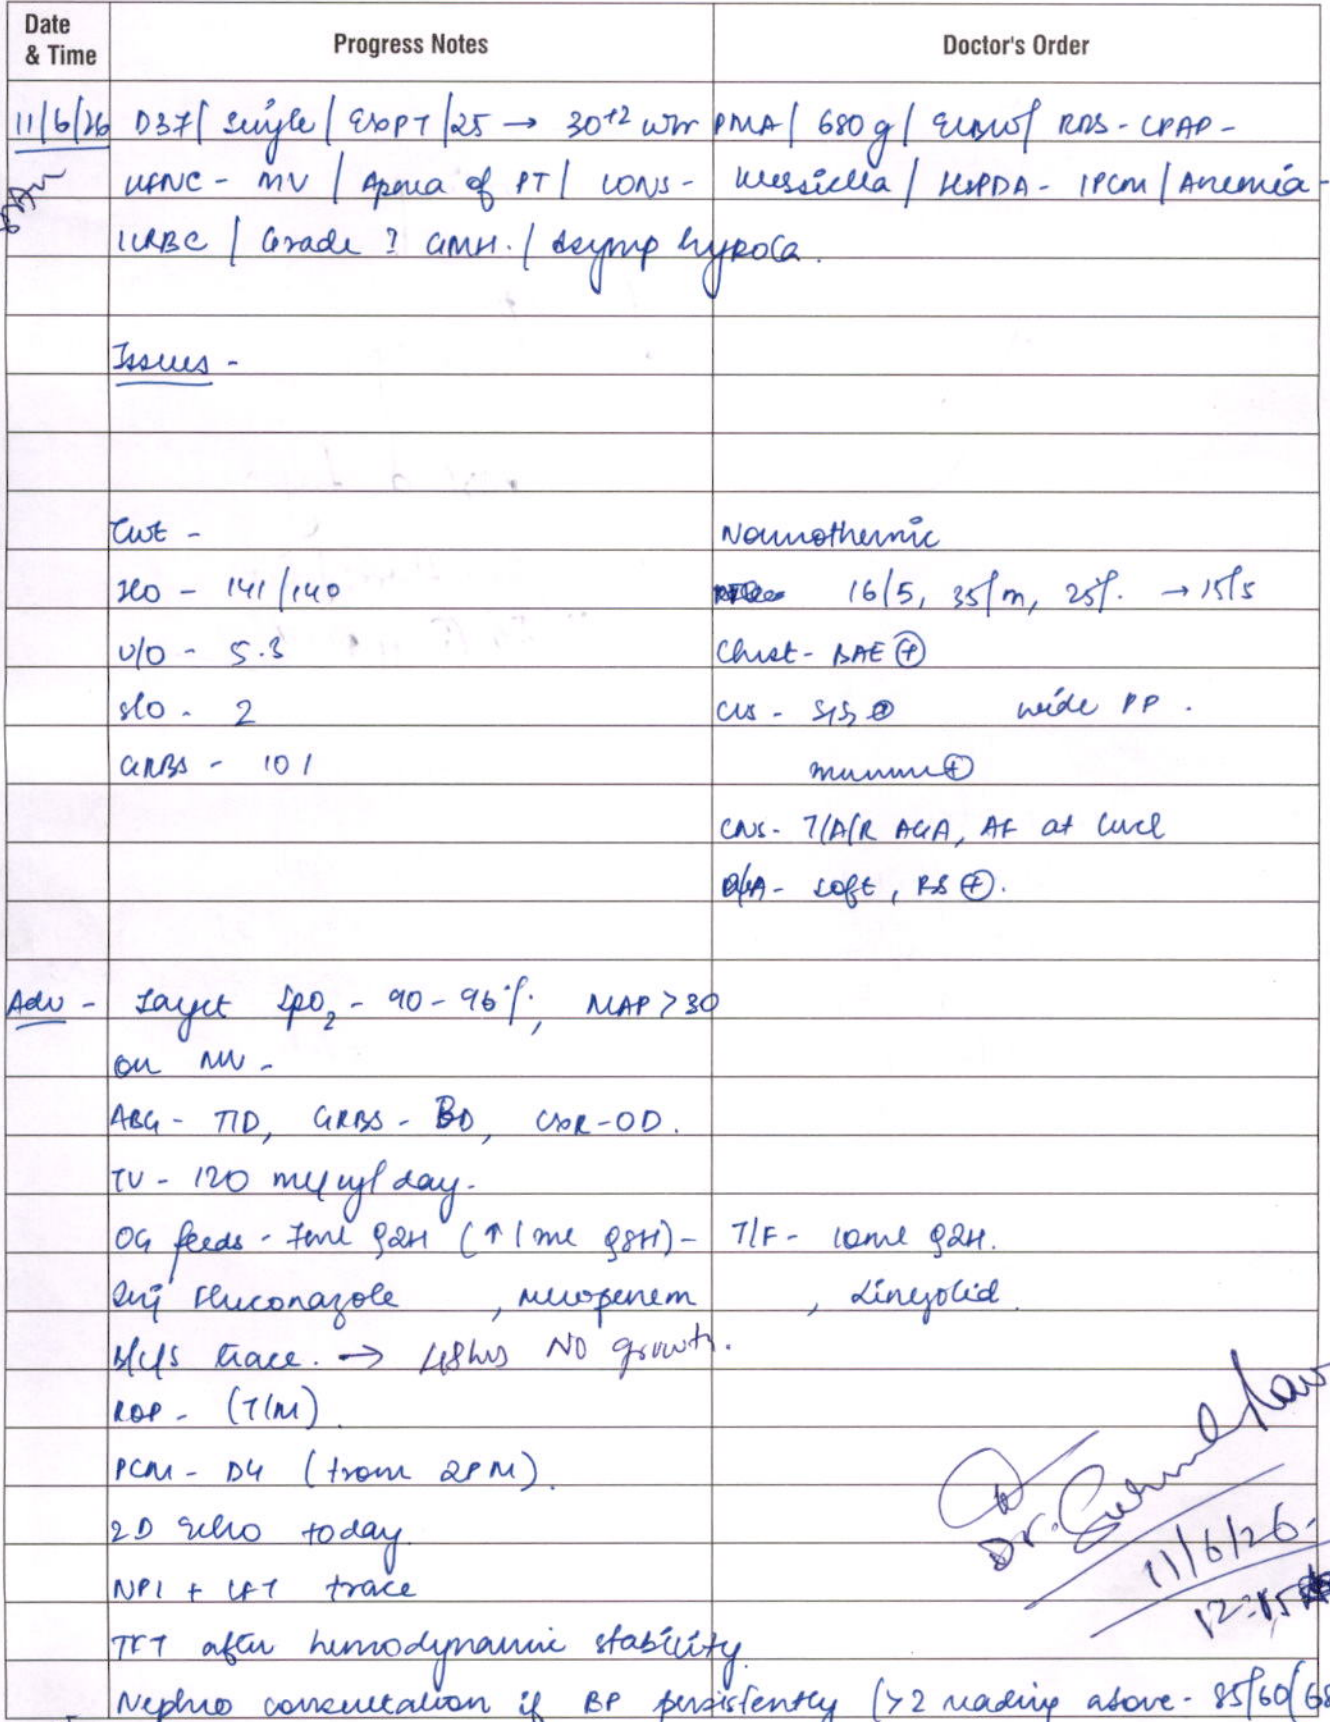 Date & Time Progress Notes Doctor's Order
11/6/26 D37/ Single/ ExPT/25 → 30+2 wks PMA/ 680 g/ ELBW/ RDS - CPAP -
HFNC - MV / Apnea of PT/ LONS - Klebsiella / HSPDA - IPCM / Anemia -
1 PRBC / Grade ? GMH. / Asymp hypoCa.
Issues -
Cwt - Normothermic
I/O - 141/140 16/5, 35/m, 25%. → 15/5
U/O - 5.3 Chest - BAE ⊕
S/O - 2 CVS - S1S2 ⊕ wide PP.
GRBS - 101 murmur ⊕
CNS - T/A/R AGA, AF at level
P/A - soft, BS ⊕.
Adv - Target SpO2 - 90 - 96%, MAP > 30
on MV -
ABG - TID, GRBS - BD, CXR - OD.
TV - 120 ml/kg/day.
OG feeds - 7ml Q2H (↑ 1 ml Q8H) - T/F - 10ml Q2H.
Inj Fluconazole , Meropenem , Linezolid.
B/C/S trace. → 48hrs NO growth.
ROP - (T/M)
PCM - D4 (from 2PM).
2D Echo today
NPI + LFT trace
TFT after hemodynamic stability
Nephro consultation if BP persistently (>2 reading above - 85/60/68
Dr.
11/6/26.
12:15